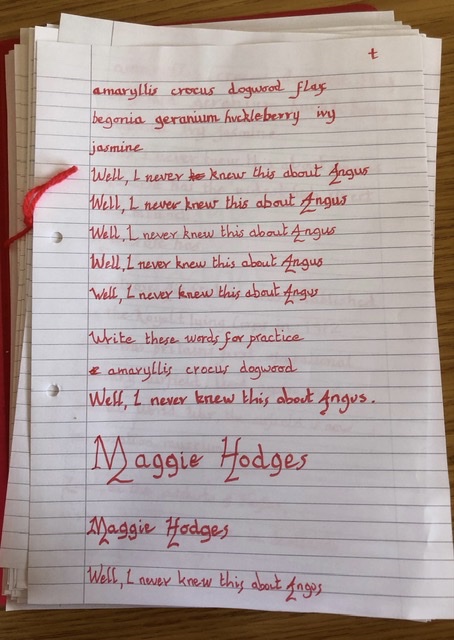 t
amaryllis crocus dogwood flax
begonia geranium huckleberry ivy
jasmine
Well, I never knew this about Angus
Well, I never knew this about Angus
Well, I never knew this about Angus
Well, I never knew this about Angus
Well, I never knew this about Angus
Write these words for practice
amaryllis crocus dogwood
Well, I never knew this about Angus.
Maggie Hodges
Maggie Hodges
Well, I never knew this about Angus